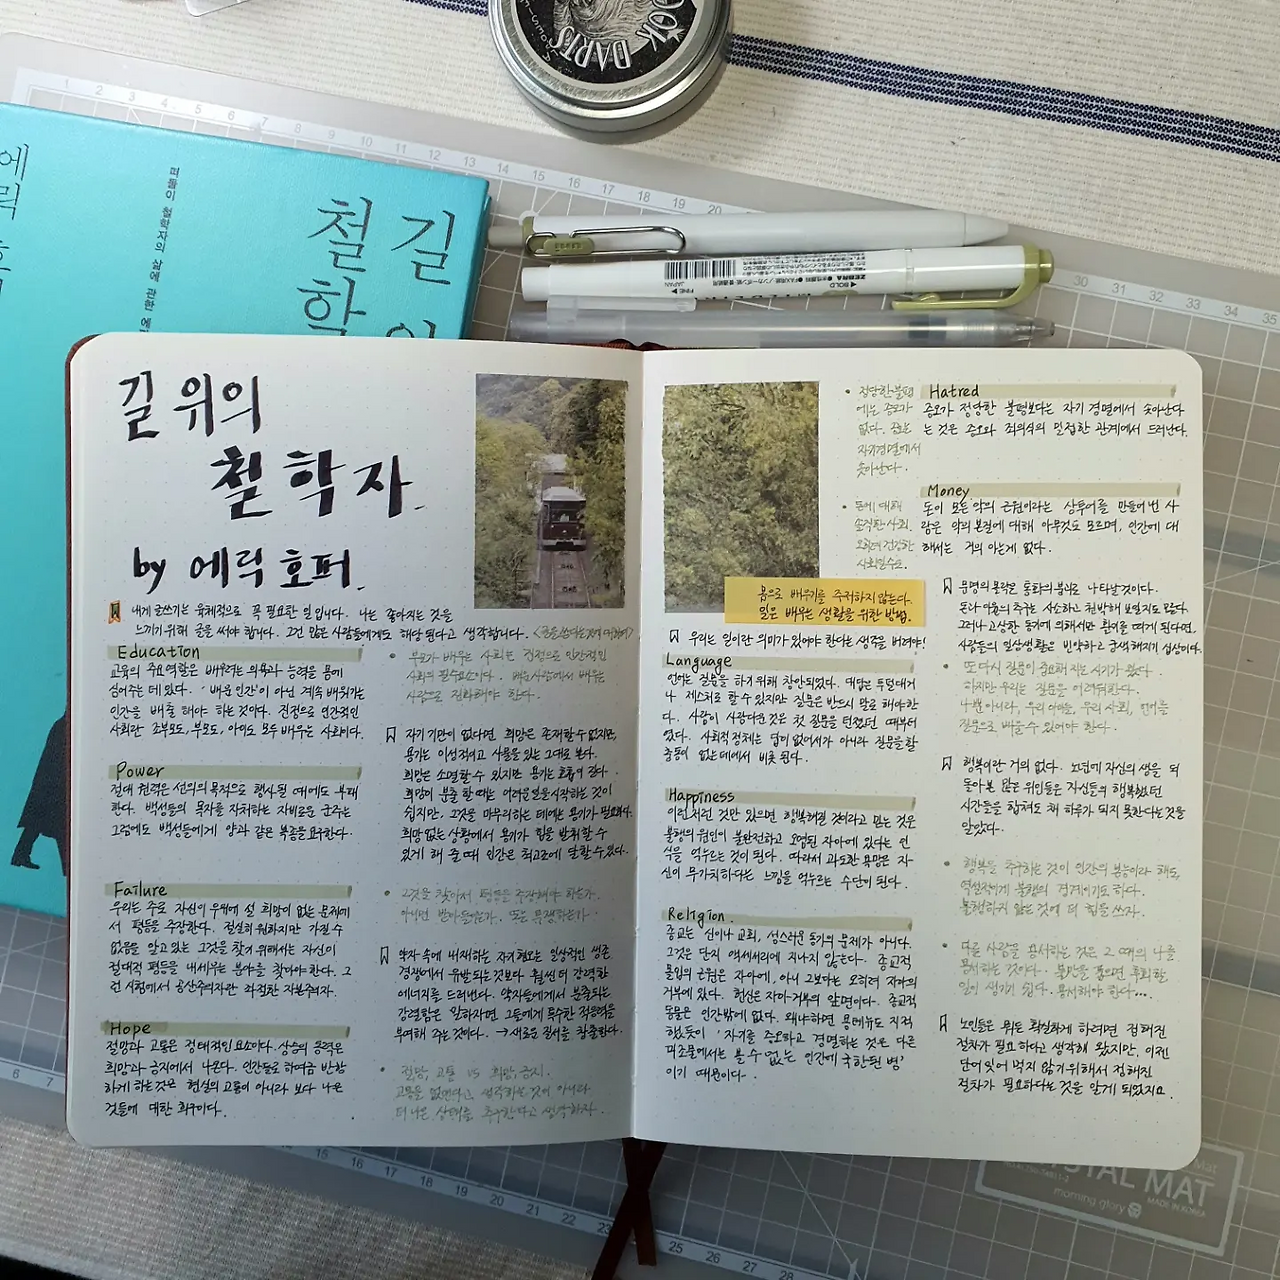 BOOK DARTS
길 위의
철학자
에릭 호퍼
떠돌이 철학자의 삶에 관한
BOLD
ZEBRA
FINE
JAPAN
길 위의
철학자.
by 에릭 호퍼.
내게 글쓰기는 육체적으로 꼭 필요한 일입니다. 나는 좋아지는 것을
느끼기 위해 글을 써야 합니다. 그건 많은 사람들에게도 해당된다고 생각합니다.
Education
교육의 주요 역할은 배우려는 의욕과 능력을 몸에
심어주는 데 있다. '배운 인간'이 아닌 계속 배워가는
인간을 배출해야 하는 것이다. 진정으로 인간적인
사회란 조부모도, 부모도, 아이도 모두 배우는 사회이다.
Power
절대 권력은 선의의 목적으로 행사될 때에도 부패
한다. 백성들의 목자를 자처하는 자비로운 군주는
그럼에도 백성들에게 양과 같은 복종을 요구한다.
Failure
우리는 주로 자신이 우위에 설 희망이 없는 문제에
서 평등을 주장한다. 절실히 원하지만 가질 수
없음을 알고 있는 그것을 찾기 위해서는 자신이
절대적 평등을 내세우는 분야를 찾아야 한다. 그
런 시험에서 공산주의자란 좌절한 자본주의자.
Hope
절망과 고통은 정태적인 요소이다. 상승의 동력은
희망과 긍지에서 나온다. 인간들로 하여금 반항
하게 하는 것은 현실의 고통이 아니라 보다 나은
것들에 대한 희구이다.
부모가 배우는 사회는 진정으로 인간적인
사회의 필수요소이다. 배운 사람에서 배우는
사람으로 진화해야 한다.
자기 기만이 없다면 희망은 존재할 수 없지만,
용기는 이성적이고 사물을 있는 그대로 본다.
희망은 소멸할 수 있지만 용기는 호흡이 길다.
희망이 분출할 때는 어려운 일을 시작하는 것이
쉽지만, 그것을 마무리하는 데에는 용기가 필요하다.
희망 없는 상황에서 용기가 힘을 발휘할 수
있게 해 줄 때 인간은 최고조에 달할 수 있다.
그것을 찾아서 평등을 주장해야 하는가.
아니면 받아들이는가. 또는 투쟁하는가.
약자 속에 내재하는 자기혐오는 일상적인 생존
경쟁에서 유발되는 것보다 훨씬 더 강력한
에너지를 드러낸다. 약자들에게서 분출되는
강렬함은 말하자면 그들에게 특수한 적응력을
부여해 주는 것이다. → 새로운 질서를 창출한다.
절망, 고통 vs 희망, 긍지.
고통을 없앤다고 생각하는 것이 아니라
더 나은 상태를 추구한다고 생각하자.
몸으로 배우기를 주저하지 않는다.
일은 배우는 생활을 위한 방법.
우리는 일이란 의미가 있어야 한다는 생각을 버려야!
Language
언어는 질문을 하기 위해 창안되었다. 대답은 투덜대거
나 제스처로 할 수 있지만 질문은 반드시 말로 해야 한
다. 사람이 사람다운 것은 첫 질문을 던졌던 때부터
였다. 사회적 정체는 답이 없어서가 아니라 질문을 할
충동이 없는 데에서 비롯된다.
Happiness
이런저런 것만 있으면 행복해질 것이라고 믿는 것은
불행의 원인이 불완전하고 오염된 자아에 있다는 인
식을 억누르는 것이 된다. 따라서 과도한 욕망은 자
신이 무가치하다는 느낌을 억누르는 수단이 된다.
Religion.
종교는 신이나 교회, 성스러운 동기의 문제가 아니다.
그것은 단지 액세서리에 지나지 않는다. 종교적
몰입의 근원은 자아에, 아니 그보다는 오히려 자아의
거부에 있다. 헌신은 자아 거부의 앞면이다. 종교적
동물은 인간밖에 없다. 왜냐하면 몽테뉴도 지적
했듯이 '자기를 증오하고 경멸하는 것은 다른
피조물에서는 볼 수 없는 인간에 국한된 병'
이기 때문이다.
정당한 불평
에는 증오가
없다. 증오는
자기경멸에서
솟아난다.
Hatred
증오가 정당한 불평보다는 자기 경멸에서 솟아난다
는 것은 증오와 죄의식의 밀접한 관계에서 드러난다.
돈에 대해
솔직한 사회.
오히려 건강한
사회일수도.
Money
돈이 모든 악의 근원이라는 상투어를 만들어 낸 사
람은 악의 본질에 대해 아무것도 모르며, 인간에 대
해서는 거의 아는게 없다.
문명의 몰락을 통화의 불신로 나타날 것이다.
돈과 이윤의 추구는 사소하고 천박해 보일지도 모른다.
그러나 고상한 동기에 의해서만 활기를 띠게 된다면,
사람들의 일상생활은 빈약하고 궁색해지기 십상이다.
또 다시 질문이 중요해지는 시기가 왔다.
하지만 우리는 질문을 어려워한다.
나뿐 아니라, 우리 아이들, 우리 사회, 언어를
질문으로 배울 수 있어야 한다.
행복이란 거의 없다. 노년에 자신의 생을 되
돌아본 많은 위인들은 자신들의 행복했던
시간들을 합쳐도 채 하루가 되지 못한다는 것을
알았다.
행복을 추구하는 것이 인간의 본능이라 해도,
역설적이게 불행의 경계이기도 하다.
불행하지 않는 것에 더 힘을 쓰자.
다른 사람을 용서하는 것은 그 때의 나를
용서하는 것이다. 불만을 품으면 후회할
일이 생기기 쉽다. 용서해야 한다...
노인들은 뭐든 확실하게 하려면 정해진
절차가 필요하다고 생각해 왔지만, 이젠
단어 잊어 먹지 않기 위해서 정해진
절차가 필요하다는 것을 알게 되었지요.
CRYSTAL MAT
morning glory
MADE IN KOREA